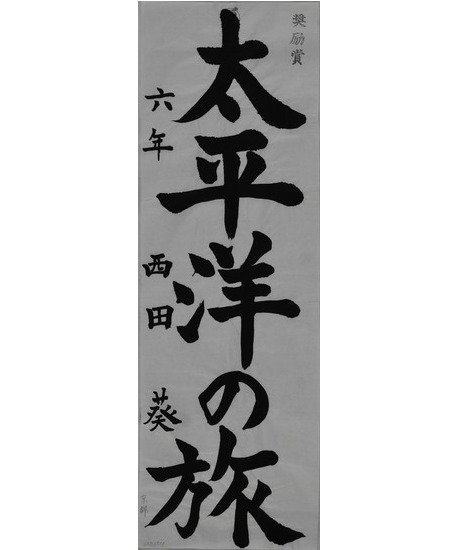 奨励賞
太平洋の旅
六年 西田 葵